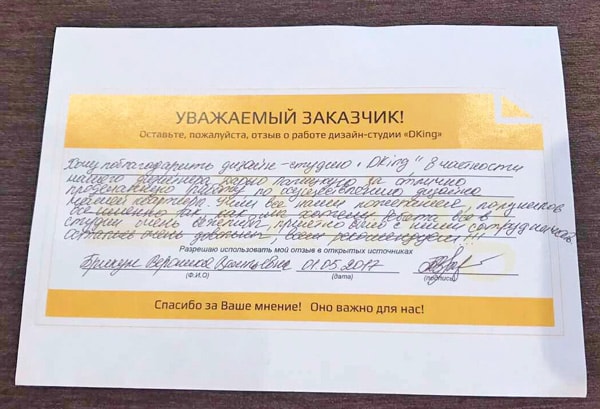 УВАЖАЕМЫЙ ЗАКАЗЧИК!
Оставьте, пожалуйста, отзыв о работе дизайн-студии «DKing»
Хочу поблагодарить дизайн-студию "DKing" В частности
нашего дизайнера за отлично
проделанную работу по дизайна
нашей квартиры. Учли все наши пожелания, получилось
все именно так как мы хотели. Ребята все в
студии очень, приятно было с ними сотрудничать
остались очень довольны, всем рекомендуем!!!
Разрешаю использовать мой отзыв в открытых источниках
Вероника 01.05.2017
(Ф.И.О) (дата) (подпись)
Спасибо за Ваше мнение! Оно важно для нас!